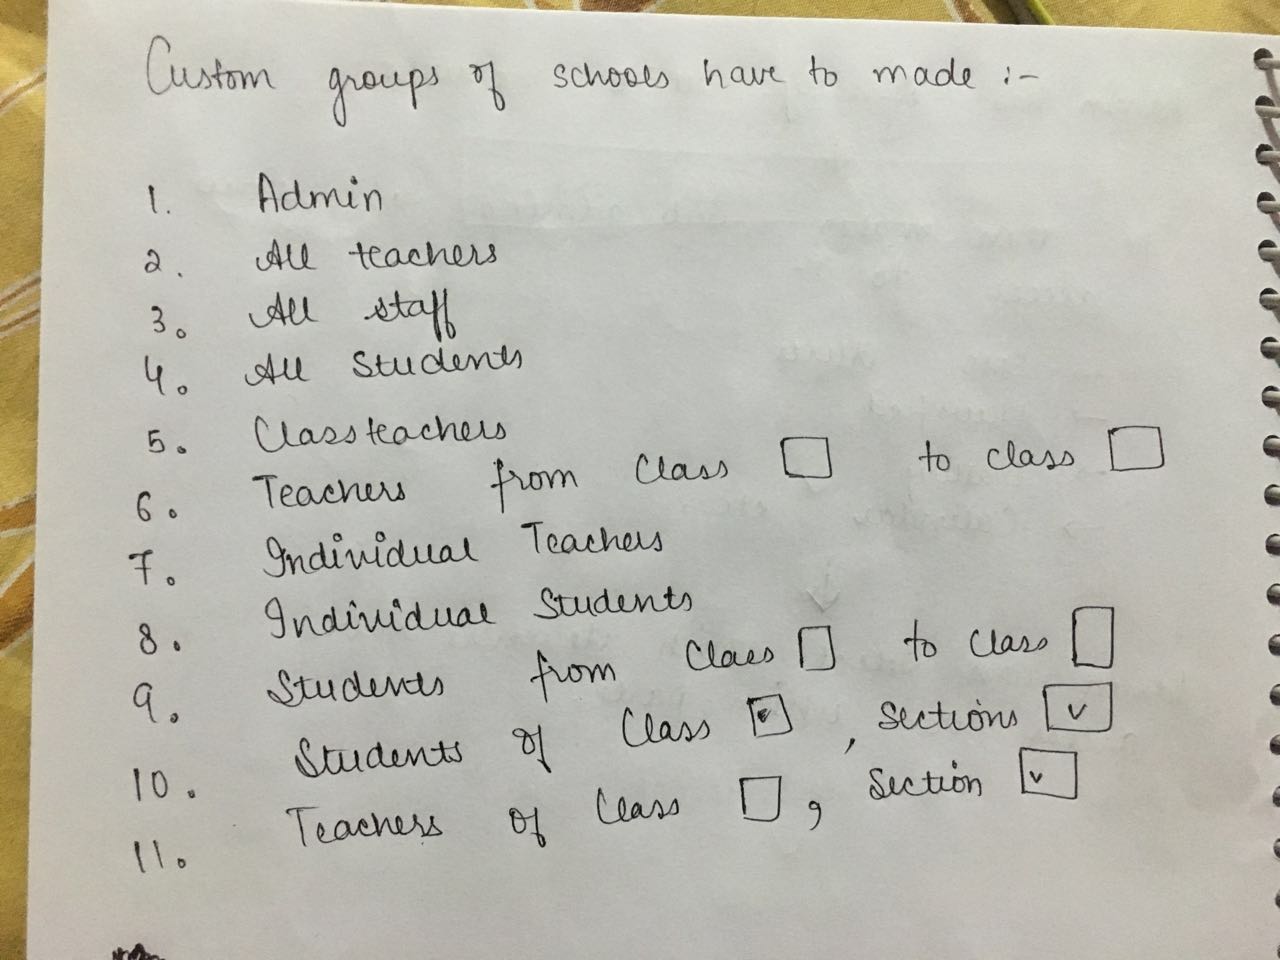 Custom groups of schools have to made :-
1. Admin
2. All teachers
3. All staff
4. All Students
5. Classteachers
6. Teachers from Class to class
7. Individual Teachers
8. Individual Students
9. Students from Class to Class
10. Students of Class , Sections
11. Teachers of Class , Section